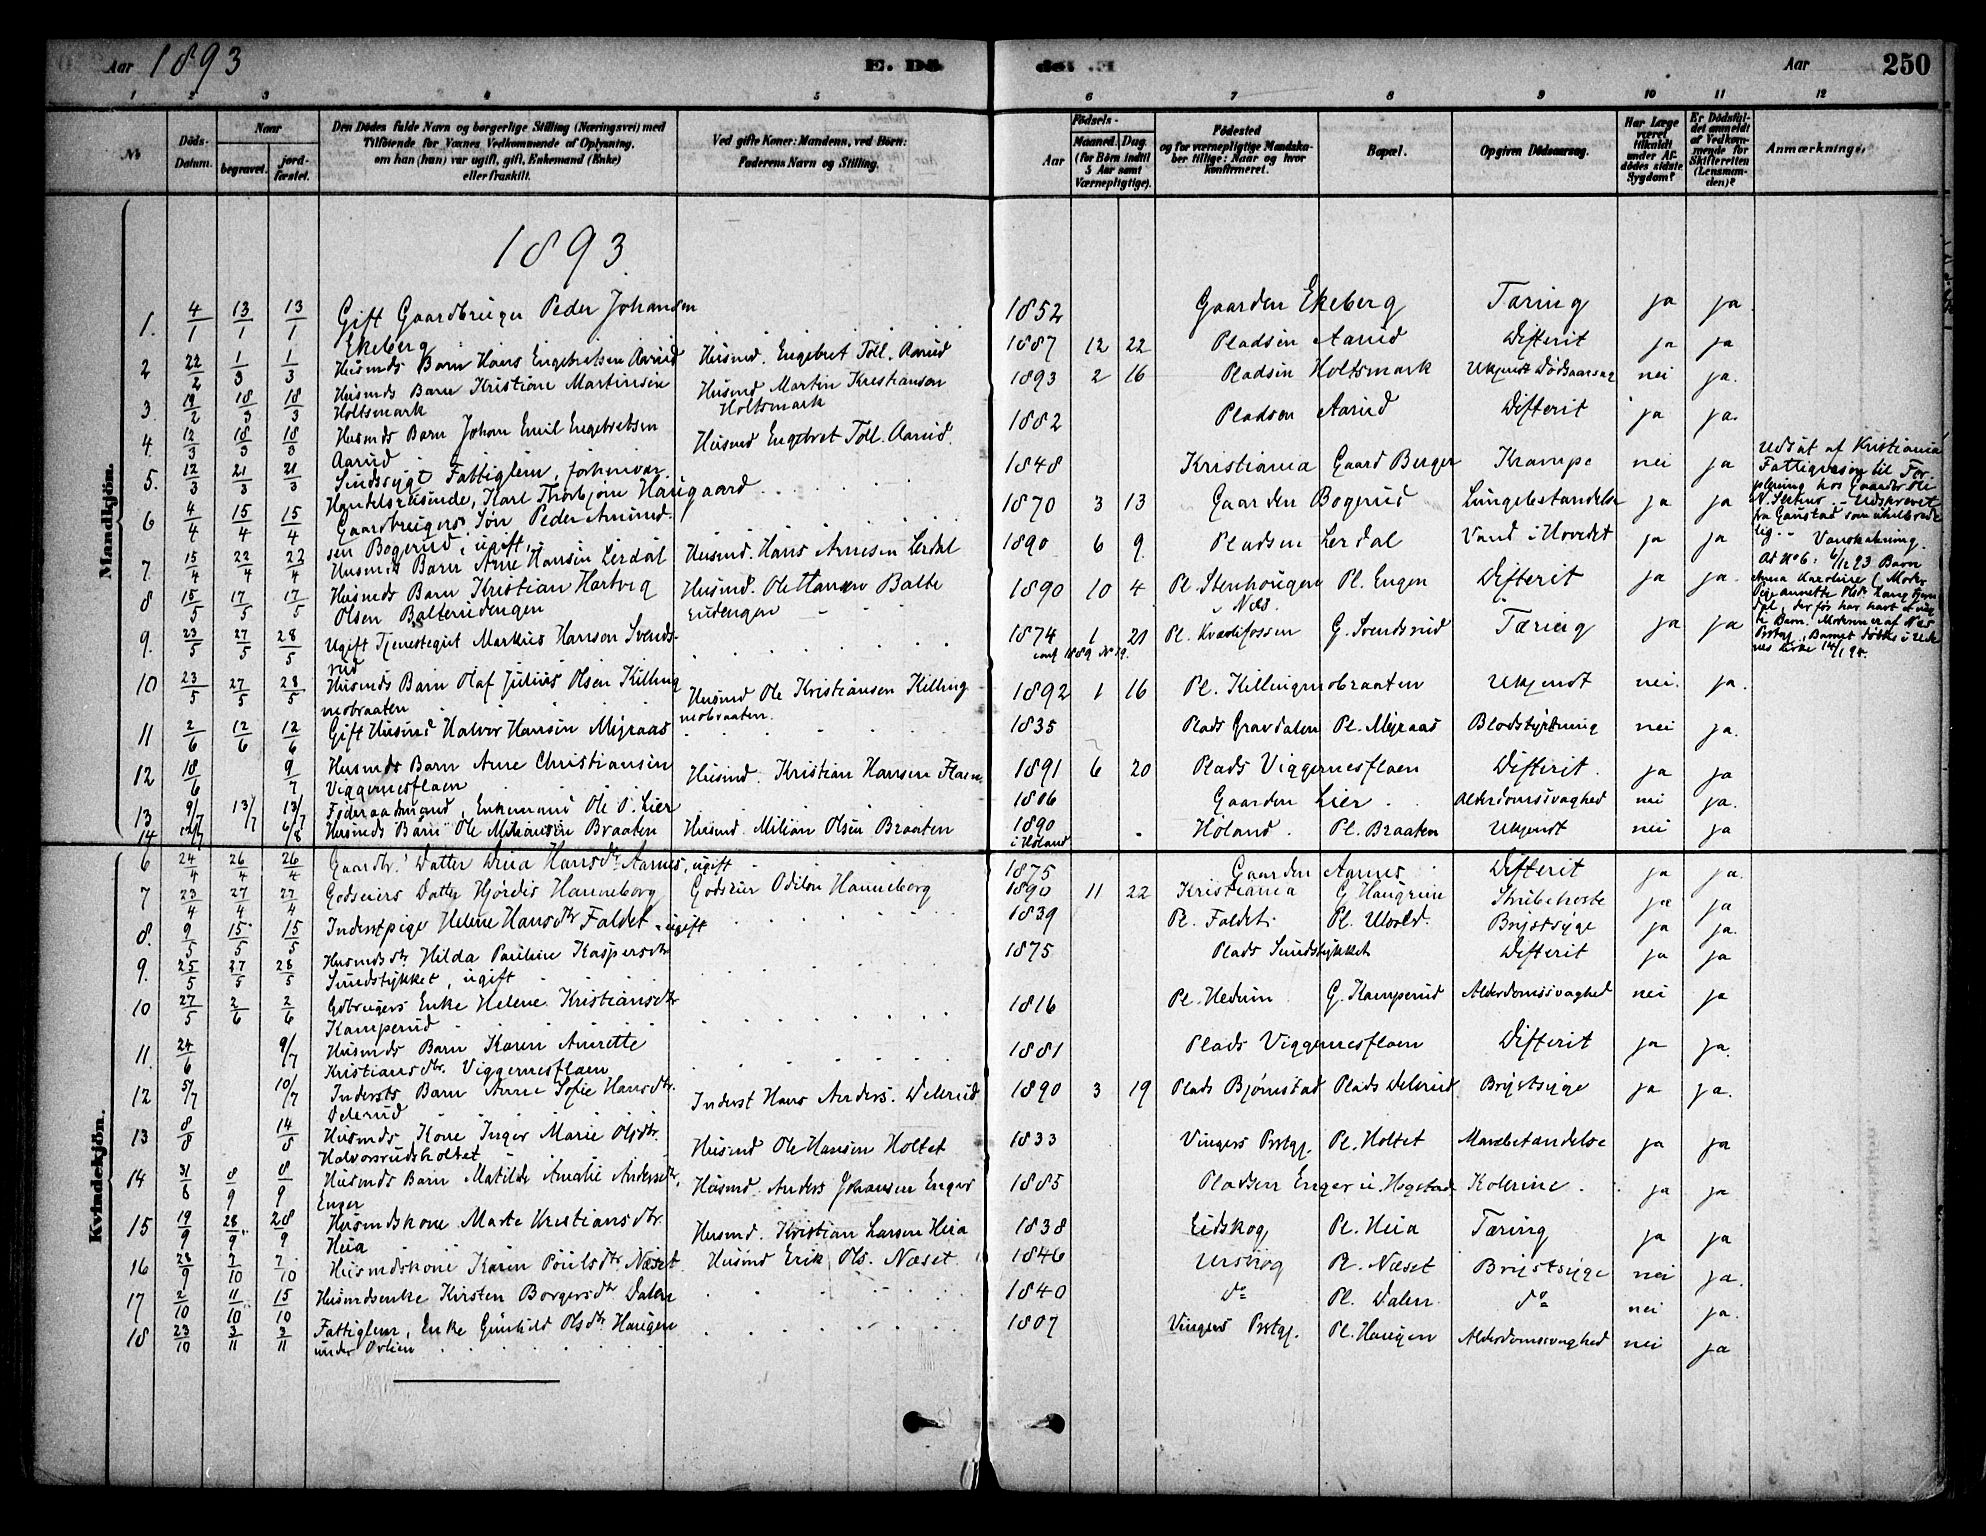 Aar 1893
E. Dö
de. E.
Aar
250
1 2 3 4 5 6 7 8 9 10 11 12
No
Döds-Datum.
Naar
begravet.
jord-fæstet.
Den Dödes fulde Navn og borgerlige Stilling (Næringsvei) med
Tilföiende for Voxnes Vedkommende af Oplysning,
om han (hun) var ugift, gift, Enkemand (Enke)
eller fraskilt.
Ved gifte Koner: Mandens, ved Börn:
Faderens Navn og Stilling.
Födsels-
Aar
Maaned. Dag.
(for Börn indtil
5 Aar samt
Værnepligtige).
Födested
og for værnepligtige Mandska-
ber tillige: Naar og hvor
konfirmeret.
Bopæl.
Opgiven Dödsaarsag.
Har Læge
været
tilkaldt
under Af-
dödes sidste
Sygdom?
Er Dödsfal-
det anmeldt
af Vedkom-
mende for
Skifteretten
(Lensman-
den)?
Anmærkninger.
Mandkjön.
1893
1. 4/1 13/1 13/1 Gift Gaardbruger Peder Johansen Ekeberg 1852 Gaarden Ekeberg Tæring ja ja
2 22/2 1/3 1/3 Husmds Barn Hans Engebretsen Aarud Husmd. Engebret Toll. Aarud 1887 12 22 Pladsen Aarud Difterit ja ja
3. 19/2 18/3 18/3 Husmds Barn Kristian Martinsen Holtsmark Husmd Martin Kristiansen Holtsmark 1893 2 16 Pladsen Holtsmark Ukjendt Dødsaarsag nei ja.
4. 12/3 18/3 18/3 Husmds Barn Johan Emil Engebretsen Aarud Husmd Engebret Toll. Aarud. 1882 Pladsen Aarud Difterit ja ja.
5. 12/3 21/3 21/3 Sindssygt Fattiglem, forhenvær. Handelsreisende, Karl Thorbjørn Haugaard 1848 Kristiania Gaard Berger Krampe nei ja
6 4/4 15/4 15/4 Gaardbrugers Søn Peder Amundsen Bogerud, ugift, 1870 3 13 Gaarden Bogerud Lungebetændelse ja ja
7. 15/4 22/4 22/4 Husmds Barn Arne Hansen Lerdal Husmd. Hans Arnesen Lerdal 1890 6 9 Pladsen Lerdal Vand i Hovedet ja ja
8 15/5 17/5 17/5 Husmds Barn Kristian Hartvig Olsen Balterudengen Husmd. Ole Hansen Balterudengen 1890 10 4 Pl. Stenhougen i Nes. Pl. Engen Difterit ja ja.
9. 23/5 27/5 28/5 Ugift Tjenestegut Markus Hansen Svendsrud 1874 1 21 Pl. Kværlifossen G. Svendsrud Tæring ja ja
conf 1889 No 19.
10 23/5 27/5 28/5 Husmds Barn Olaf Julius Olsen Killingmobraaten Husmd Ole Kristiansen Killingmobraaten. 1892 1 16 Pl. Killingmobraaten Ukjendt nei. ja.
11 2/6 12/6 12/6 Gift Husmd Halvor Hansen Myraas 1835 Plads Gravdalen Pl. Myraas Blodstyrtning nei ja.
12 18/6 9/7 Husmds Barn Arne Christiansen Viggernesflaen Husmd. Kristian Hansen Flaen 1891 6 20 Plads Viggernesflaen Difterit. ja ja
13 9/7 13/7 13/7 Føderaadsmand, Enkemand Ole O. Lier 1806 Gaarden Lier. Alderdomssvaghed nei ja.
14 6/8 Husmds Barn Ole Miliansen Braaten Husmd. Milian Olsen Braaten 1890 i Høland Høland. Pl. Braaten Ukjendt nei ja
Udsat af Kristiania
Fattigvæsen til For-
plejning hos Gaardbr Oli
Udskrevet
fra Gaustad som uhelbrede-
lig. — Vanskabning.
Ad No 6: 6/12 93 Barn
Anna Karoline (Moder
Pige Annette
før har havt et uæg
te Barn. Moderen af Nes
Prstgj. Barnet døbt i
nes Kirke 14/1 94.
Kvindekjön.
6 24/4 26/4 26/4 Gaardbr. Datter Dina Hansdtr Aarnes, ugift 1875 Gaarden Aarnes Difterit ja ja.
7 23/4 27/4 27/4 Godseiers Datter Hjørdis Hanneborg Godseier Odilon Hanneborg 1890 11 22 Kristiania G. Haugrim Strubehoste ja ja
8. 9/5 15/5 15/5 Inderstpige Helene Hansdtr Faldet - ugift 1839 Pl. Faldet. Brystsyge ja ja.
9. 25/5 27/5 28/5 Husmdsdtr Hilda Pauline Kaspersdtr Sundstykket, ugift 1875 Plads Sundstykket Difterit ja ja
10 27/5 2/6 2/6 Gdbrugers Enke Helene Kristiansdtr Kamperud 1816 Pl. Hedum G. Kamperud Alderdomssvaghed nei ja
11. 24/6 9/7 Husmds Barn Karen Annette Kristiansdtr. Viggernesflaen 1881 Plads Viggernesflaen Difterit ja ja.
12 5/7 10/7 Indersts Barn Anne Sofie Hansdtr. Delerud Inderst Hans Anders. Delerud 1890 3 19 Plads Bjørnstad Plads Delerud Brystsyge ja ja.
13 8/8 14/8 Husmds Kone Inger Marie Olsdtr. Halvorsrudsholtet Husmd Ole Hansen Holtet 1833 Vingers Prstgj. Pl. Holtet Mavebetændelse ja ja
14 31/8 8/9 8/9 Husmds Barn Matilde Amalie Andersdtr, Enger Husmd. Anders Johansen Enger 1885 Pladsen Enger u. Hogstad Kolerine. ja ja
15 19/9 28/9 28/9 Husmdskone Marte Kristiansdtr. Heia Husmd. Kristian Larsen Heia 1838 Eidskog Pl. Heia Tæring ja ja
16 28/9 7/10 7/10 Husmdskone Karen Poulsdtr Næset. Husmd Erik Ols. Næset. 1846 Urskog Pl. Næset Brystsyge nei ja.
17 2/10 11/10 15/10 Husmdsenke Kirsten Borgersdtr Dalen 1840 do Pl. Dalen do nei ja.
18 23/10 3/11 3/11 Fattiglem, Enke Gunhild Olsdtr Haugen under Ovlien 1807 Vingers Prstgj. Pl. Haugen Alderdomssvaghed nei ja